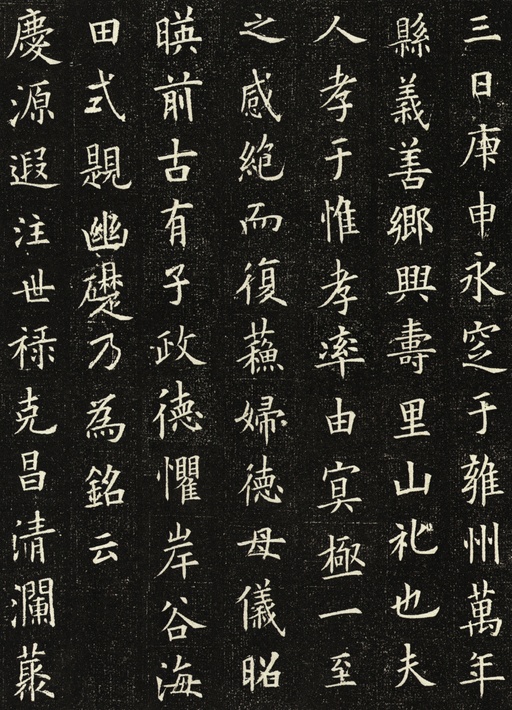 三日庚申永窆于雍州萬年
縣義善鄉興壽里山礼也夫
人孝于惟孝率由寘極一至
之感絶而復蘓婦德母儀昭
暎前古有子政德懼岸谷海
田式題幽礎乃為銘云
慶源遐注世祿克昌清瀾蕞